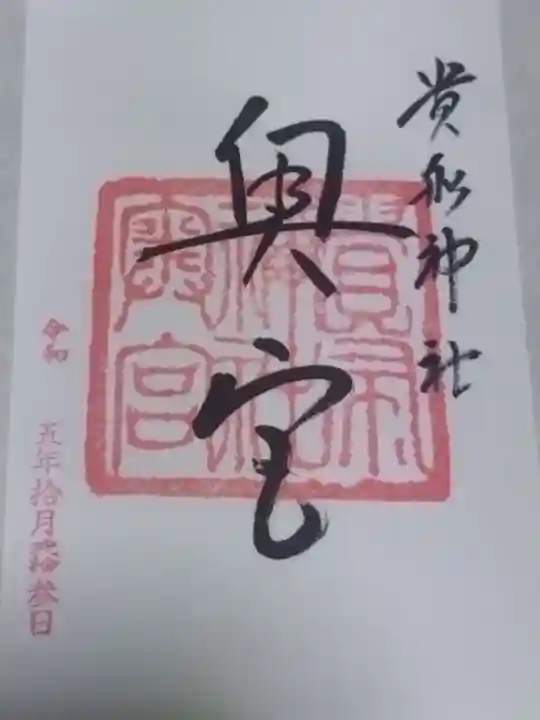 貴船神社
奥宮
貴船
神社
奥宮
令和 五年拾月弐拾参日